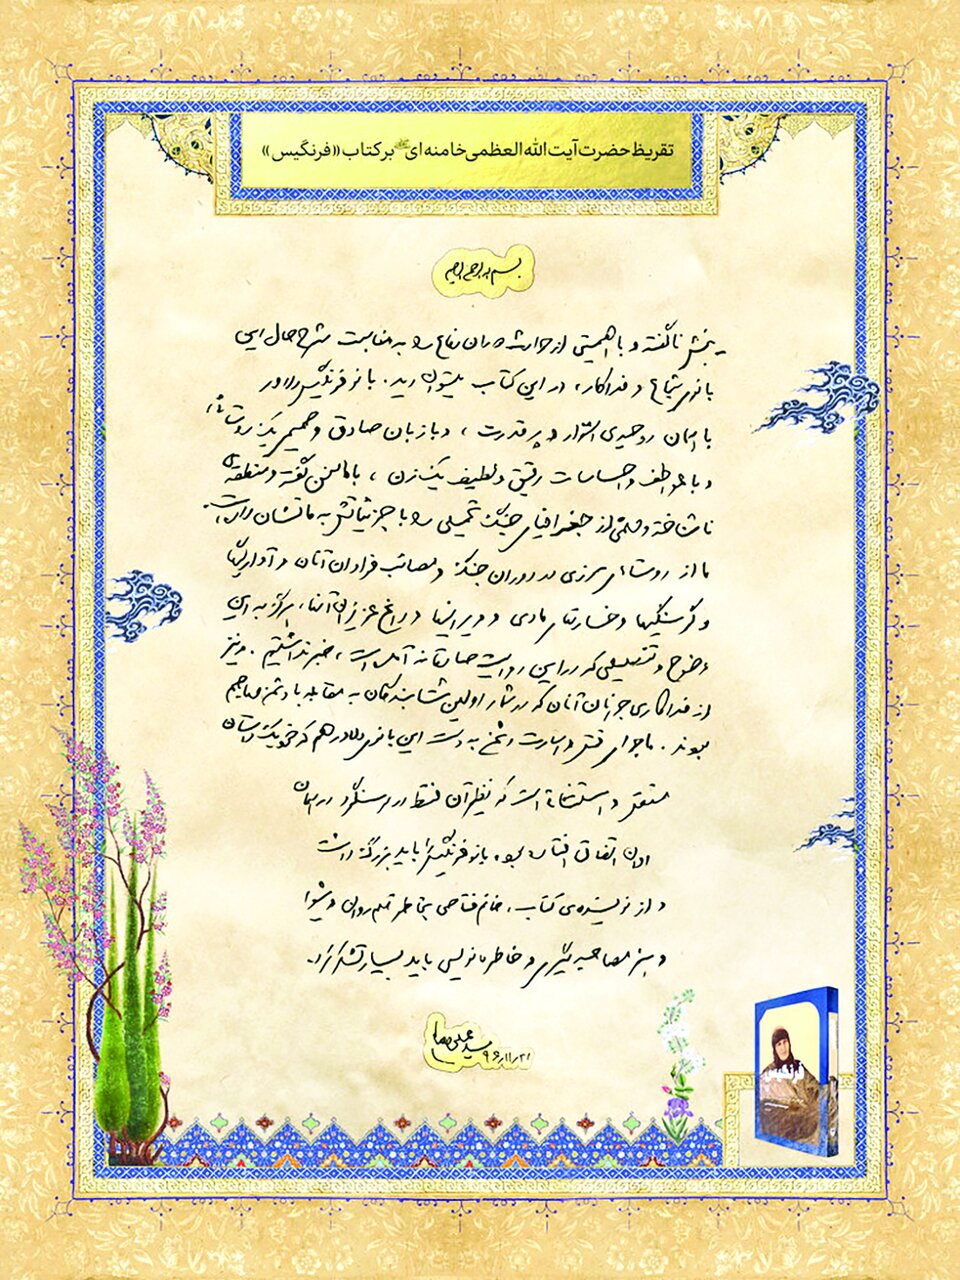 تقریظ حضرت آیت‌الله‌العظمی خامنه‌ای بر کتاب «فرنگیس»
بسم الله الرحمن الرحیم
بخش ناگفته و با اهمیتی از حوادث دوران دفاع را به مناسبت شرح حال این
بانوی شجاع و فداکار، در این کتاب میتوان دید. بانو فرنگیس دلاور
با همان روحیه‌ی استوار و پر قدرت، و با زبان صادق و صمیمی یک روستائی،
و با عواطف و احساسات رقیق و لطیف یک زن، با ما سخن گفته و منطقه‌ی
ناشناخته و مهمّی از جغرافیای جنگ تحمیلی را با جزئیاتش به ما نشان داده است.
ما از روستاهای مرزی در دوران جنگ و مصائب فراوان آنان و آوارگیها
و گرسنگیها و خسارتهای مادی و ویرانیها و داغ عزیزان آنها، هرگز به این
وضوح و تفصیلی که در این روایت صادقانه آمده است، خبر نداشتیم. و نیز
از فداکاری جوانان آنان که در شمار اولین شتابندگان به مقابله با دشمن مهاجم
بودند. ماجرای قتل و اسارت دشمن به دست این بانوی دلاور هم که خود یک داستان
مستقل و استثنائی است که نظیر آن فقط در سوسنگرد در همان
اوان اتفاق افتاده بود. بانو فرنگیس را باید بزرگ داشت
و از نویسنده‌ی کتاب، خانم فتاحی بخاطر قلم روان و شیوا
و هنر مصاحبه‌گیری و خاطره‌نویسی باید بسیار تشکر کرد.
سید علی خامنه‌ای
۹۶/۱۱/۲۱